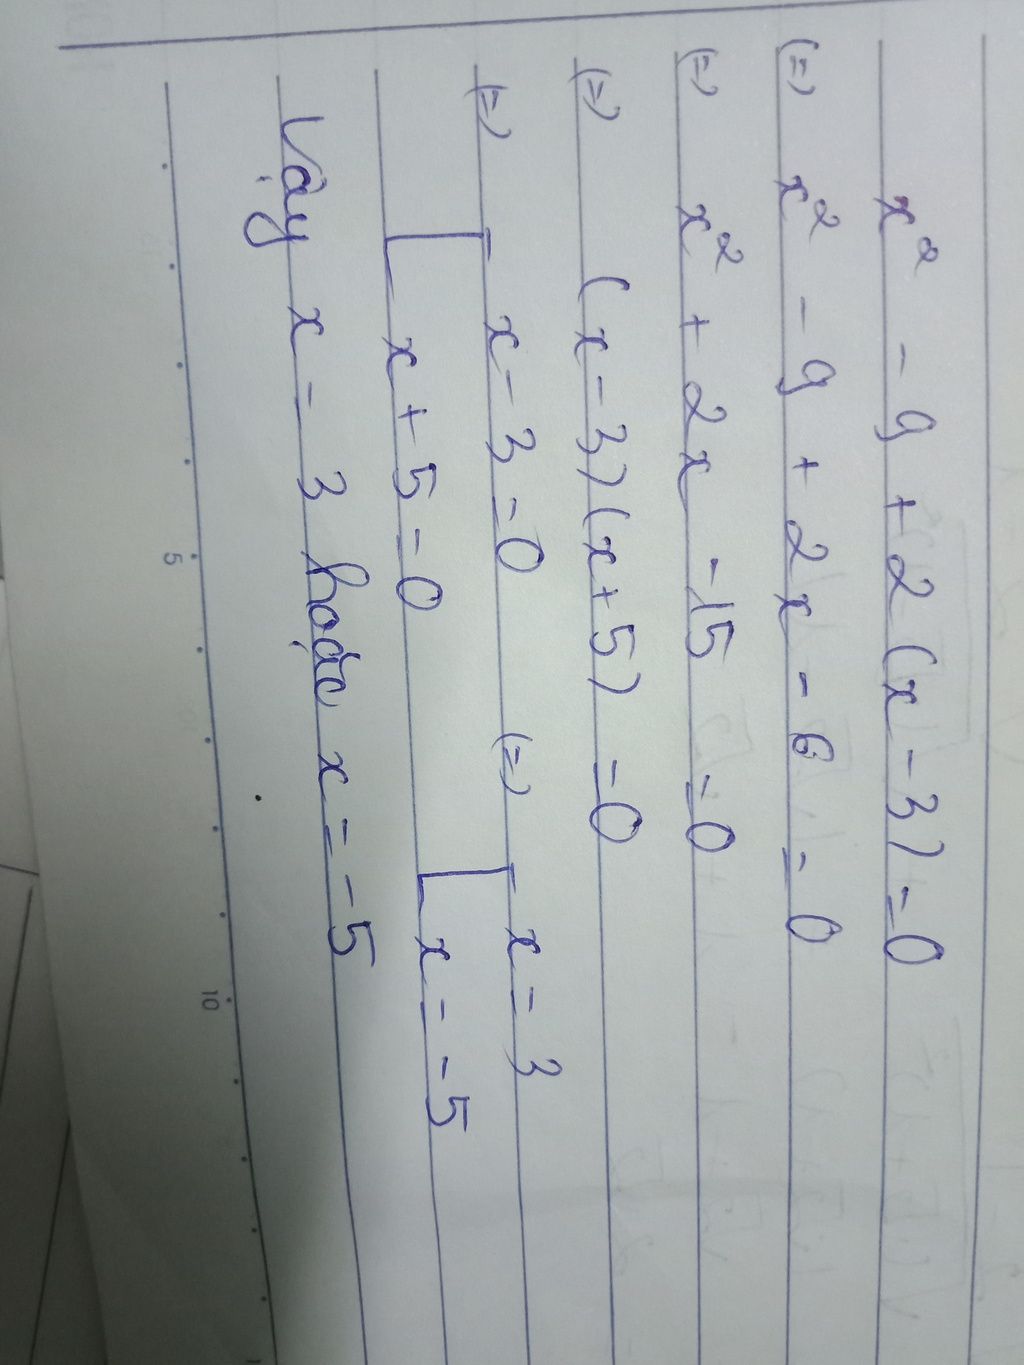 x² - 9 + 2(x - 3) = 0
(=) x² - 9 + 2x - 6 = 0
(=) x² + 2x - 15 = 0
(=) (x - 3)(x + 5) = 0
(=) [ x - 3 = 0 (=) [ x = 3
x + 5 = 0 x = -5
Vậy x = 3 hoặc x = -5
5 10